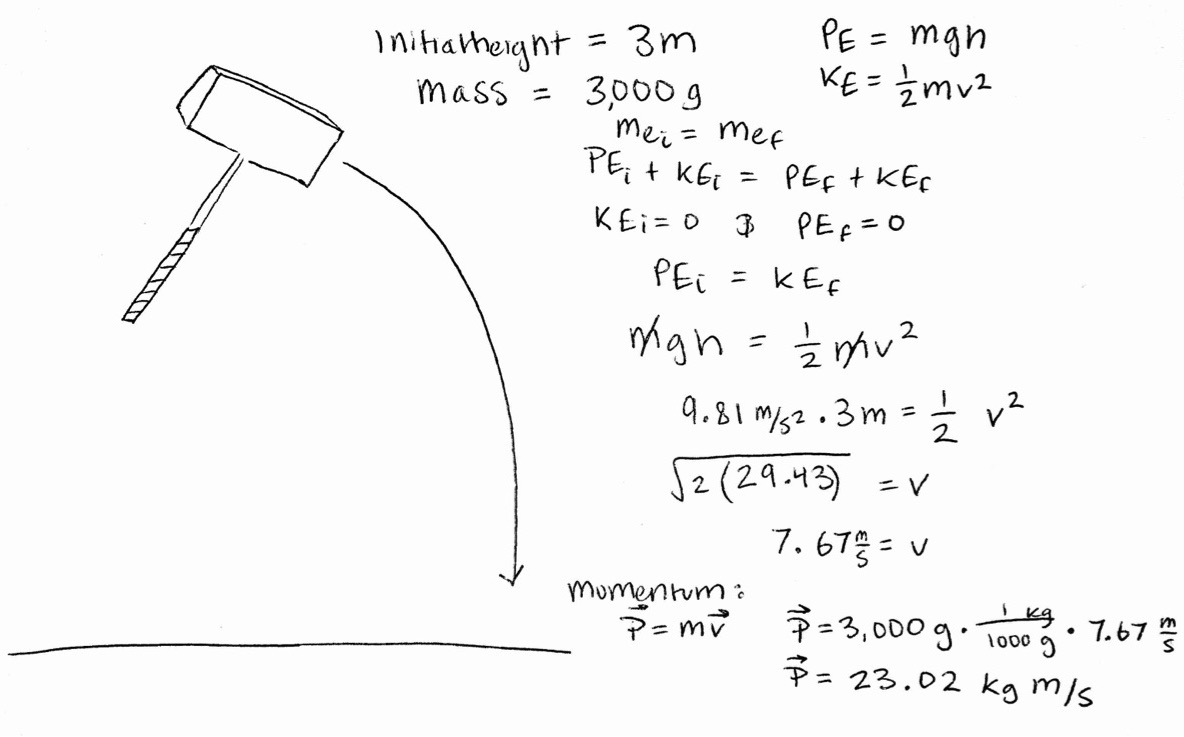 Initial height = 3m
mass = 3,000 g
PE = mgh
KE = 1/2 mv²
mei = mef
PEi + KEi = PEf + KEf
KEi = 0 & PEf = 0
PEi = KEf
mgh = 1/2 mv²
9.81 m/s² · 3m = 1/2 v²
√2(29.43) = v
7.67 m/s = v
momentum:
P⃗ = mv⃗
P⃗ = 3,000 g · 1 kg/1000 g · 7.67 m/s
P⃗ = 23.02 kg m/s